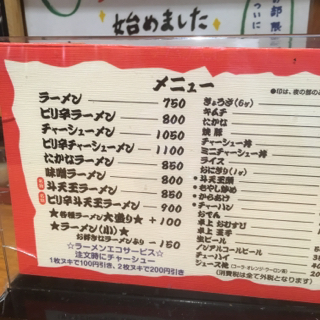 始めました
メニュー
ラーメン 750
ピリ辛ラーメン 800
チャーシューメン 1050
ピリ辛チャーシューメン 1100
にかなラーメン 850
味噌ラーメン 800
斗天王ラーメン 850
ピリ辛斗天王ラーメン 900
★各種ラーメン大盛り★ +100
★ラーメン(小)★
お好きなラーメンより -150
☆ラーメンエコサービス☆
注文時にチャーシュー
1枚ヌキで100円引き、2枚ヌキで200円引き
●印は、夜の部のみ
ぎょうざ(6ヶ)
キムチ
にかな
焼豚
チャーシュー丼
ミニチャーシュー丼
ライス
おにぎり(1ヶ)
●斗天王鍋
●もやし炒め
●からあげ
●チャーハン
おでん
卓上 おむすび
卓上 玉子
生ビール
ノンアルコールビール
チューハイ
ジュース類(コーラ・オレンジ・ウーロン等)
(消費税は全て外税となります)